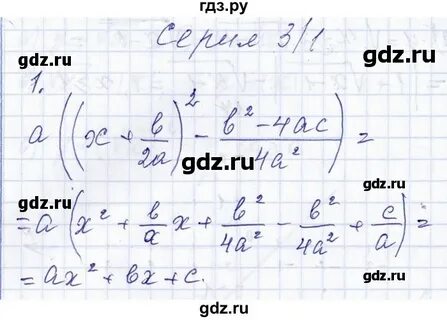 гдз.ру
Серия 3/1
gdz.ru gdz.ru
1.
a((x + b/2a)² - (b² - 4ac)/4a²) =
gdz.ru gdz.ru
= a(x² + b/a x + b²/4a² - b²/4a² + c/a) =
gdz.ru gdz.ru
= ax² + bx + c.
gdz.ru